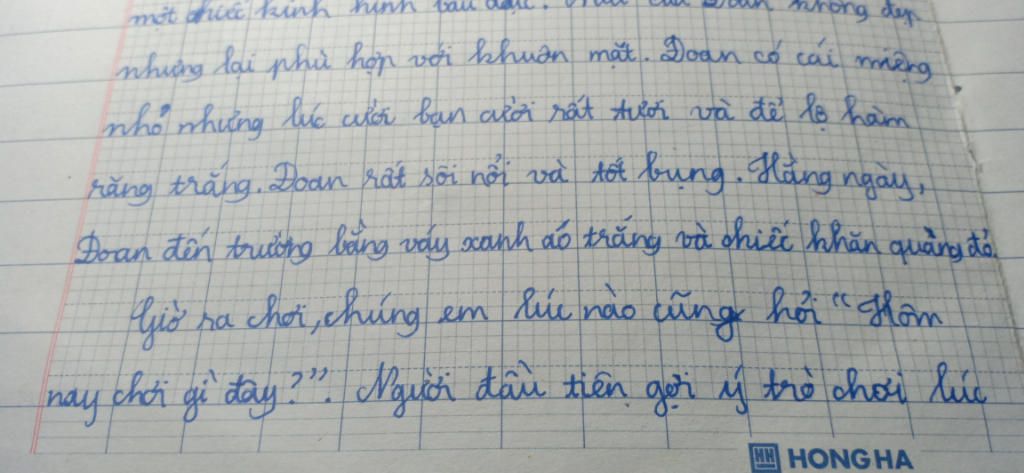 một chiếc kính hình bầu dục. không đẹp
nhưng lại phù hợp với khuôn mặt. Đoan có cái miệng
nhỏ nhưng lúc cười bạn cười rất tươi và để lộ hàm
răng trắng. Đoan rất sôi nổi và tốt bụng. Hằng ngày,
Đoan đến trường bằng váy xanh áo trắng và chiếc khăn quàng đỏ.
Giờ ra chơi, chúng em lúc nào cũng hỏi "Hôm
nay chơi gì đây?". Người đầu tiên gợi ý trò chơi lúc
HH HONG HA